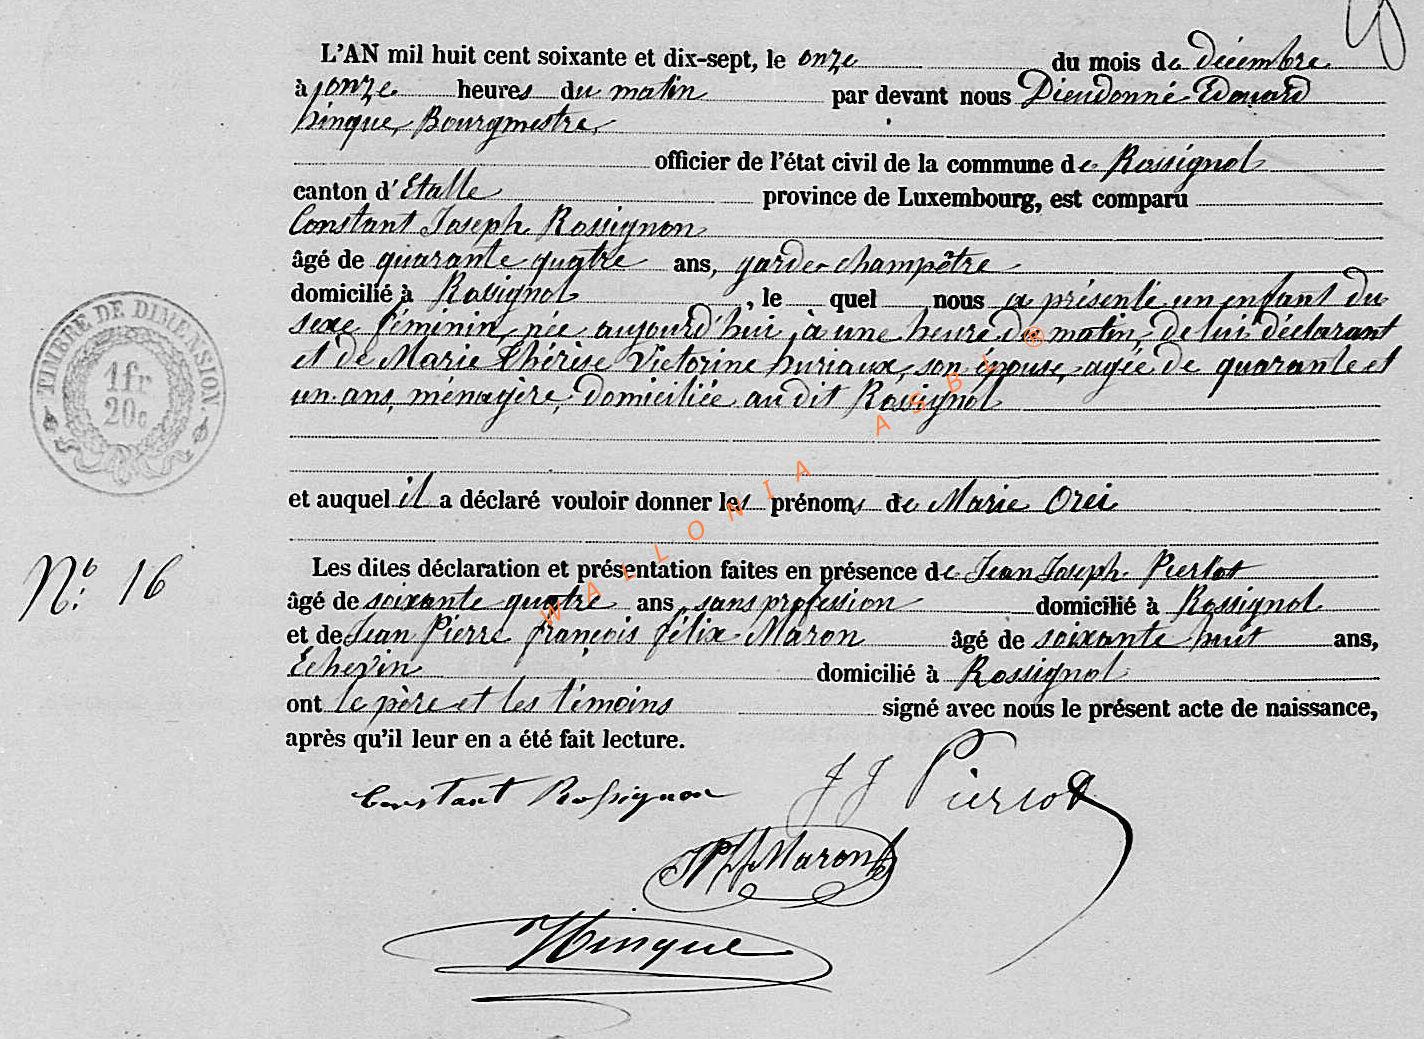 L'AN mil huit cent soixante et dix-sept, le onze du mois de décembre
à onze heures du matin par devant nous Dieudonné Edouard
hinque, Bourgmestre,
officier de l'état civil de la commune de Rossignol
canton d'Etalle province de Luxembourg, est comparu
Constant Joseph Rossignon
âgé de quarante quatre ans, garde champêtre
domicilié à Rossignol, le quel nous a présenté un enfant du
sexe féminin, née aujourd'hui, à une heure du matin, de lui déclarant
et de Marie Thérèse Victorine huriaux, son épouse, agée de quarante et
un ans, ménagère, domiciliée au dit Rossignol
et auquel il a déclaré vouloir donner les prénoms de Marie Orei
Les dites déclaration et présentation faites en présence de Jean Joseph Pierlot
âgé de soixante quatre ans, sans profession domicilié à Rossignol
et de Jean Pierre françois félix Maron âgé de soixante huit ans,
Echevin domicilié à Rossignol
ont le père et les témoins signé avec nous le présent acte de naissance,
après qu'il leur en a été fait lecture.
TIMBRE DE DIMENSION.
1 fr
20c
No. 16
Constant Rossignon
J J Pierlot
JPff Maron
Hinque
WALLONIA ASBL ®